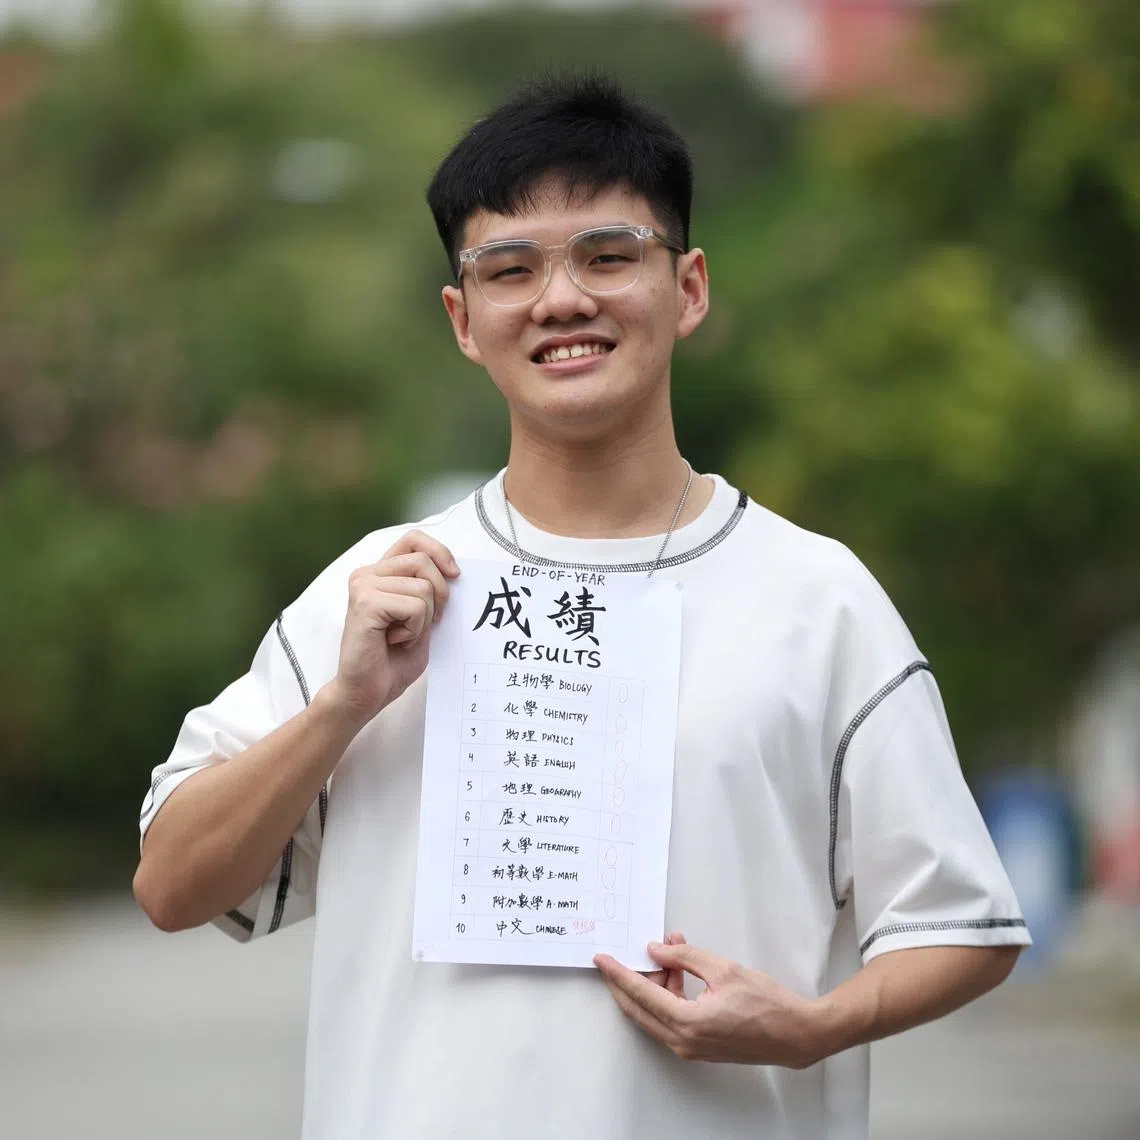 END-OF-YEAR
成績
RESULTS
1 生物學 BIOLOGY
2 化學 CHEMISTRY
3 物理 PHYSICS
4 英語 ENGLISH
5 地理 GEOGRAPHY
6 歷史 HISTORY
7 文學 LITERATURE
8 初等數學 E-MATH
9 附加數學 A-MATH
10 中文 CHINESE